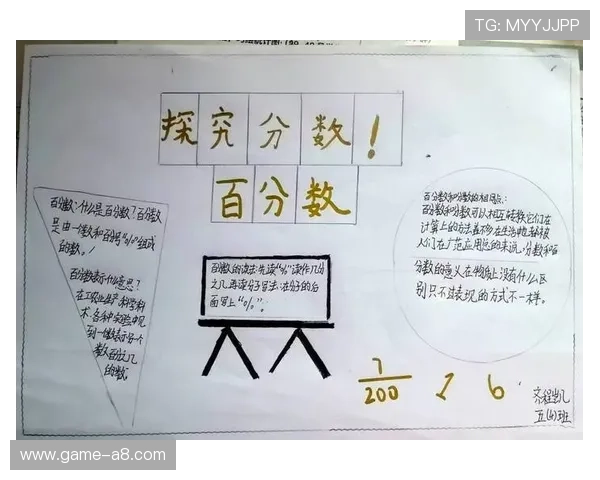 TG: MYYJJPP
探究分数！
百分数
百分数：什么是百分数？百分数
是由一个数和百分号“%”组成
的数。
百分数表示什么意思？
在工农业生产、科学科
术、各种实验中见
到一个数表示另一个
数百分之几
的数。
百分数的读法：先读“%”读作几分
之几再读分子写法：在分子的后
面写上“%”。
百分数和分数的相同点：
百分数和分数可以相互转换它们在
计算上的方法
人们在广范应用总的来说，分数和百
分数的意义在物角上没有什么区
别只不过表现的方式不一样。
7
200
1 6
齐程凯
五(4)班
www.game-a8.com